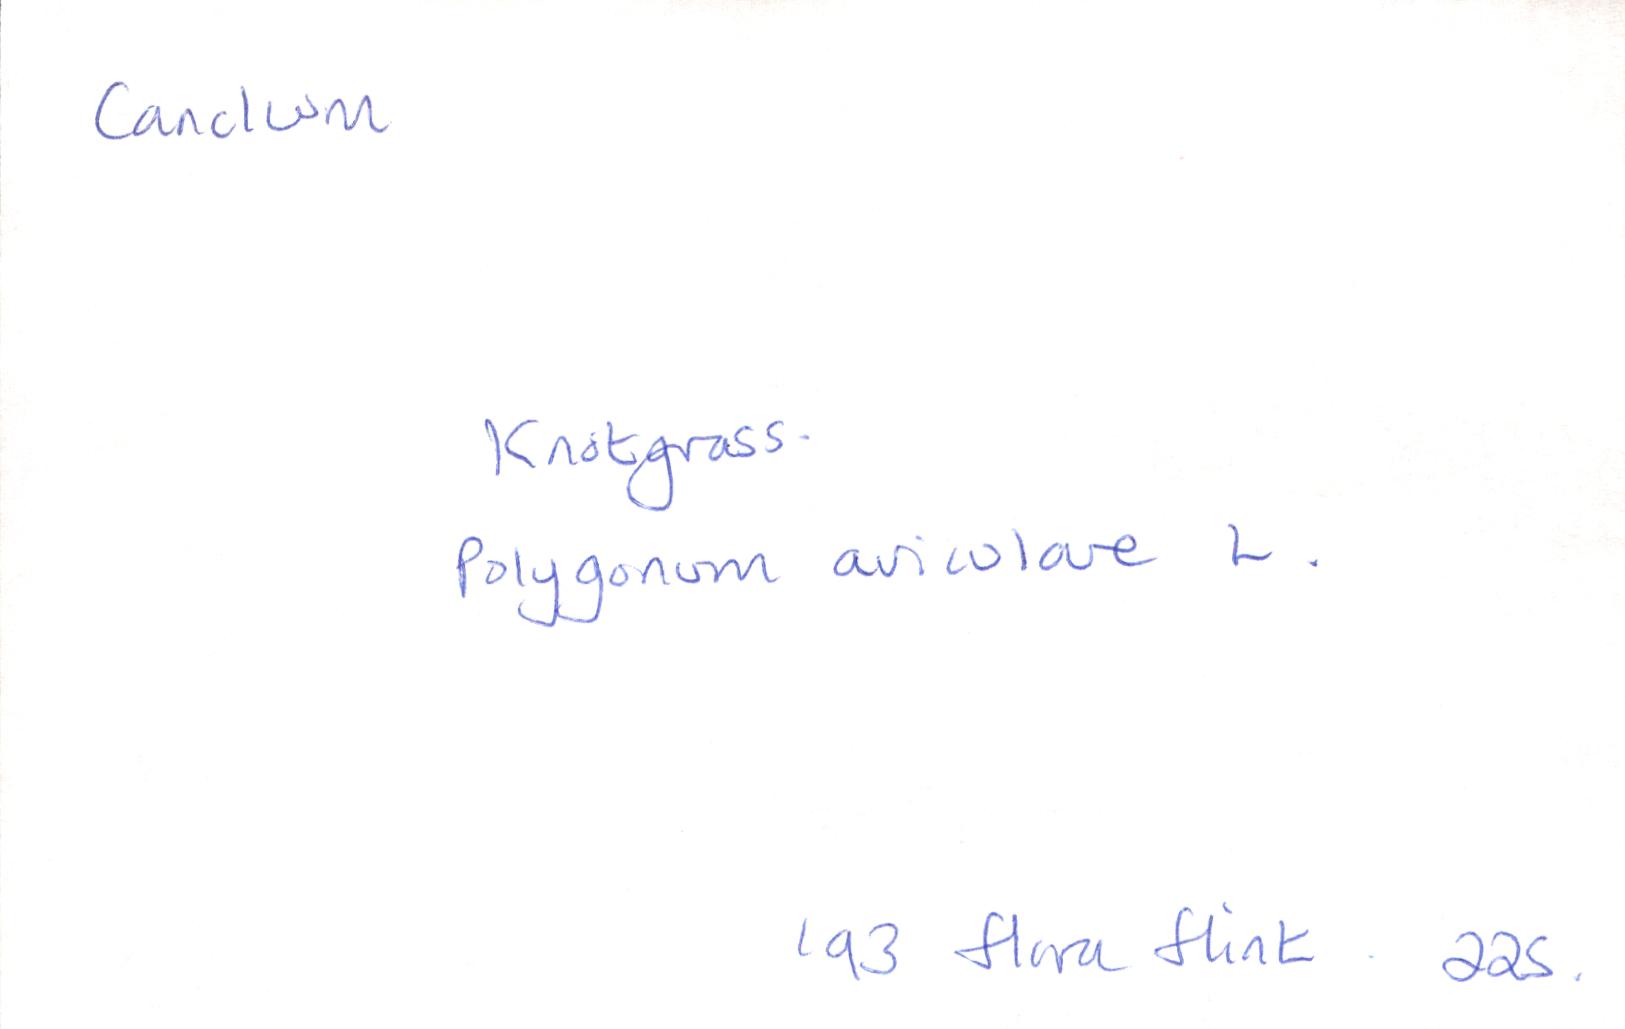 Canclwm
Knotgrass.
Polygonum aviculare L.
'93 Flora Flint. 225.